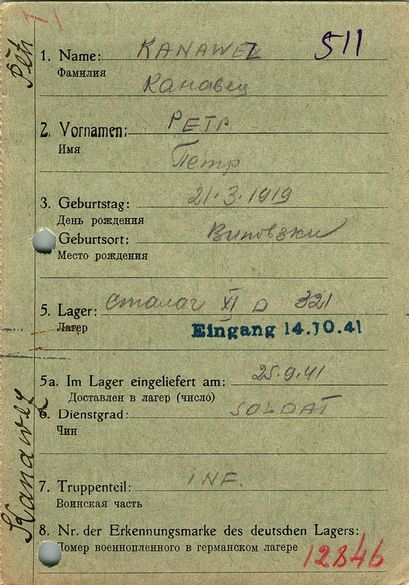 511
1. Name: KANAWEZ
Фамилия
Канавец
2. Vornamen: PETR
Имя
Петр
3. Geburtstag: 21.3.1919
День рождения
Geburtsort:
Место рождения
5. Lager: сталаг XI D 321
Лагер
Eingang 14.10.41
5a. Im Lager eingeliefert am: 25.9.41
Доставлен в лагер (число)
6. Dienstgrad: SOLDAT
Чин
7. Truppenteil: INF.
Воинская часть
8. Nr. der Erkennungsmarke des deutschen Lagers:
Номер военнопленного в германском лагере
12846
Kanawez